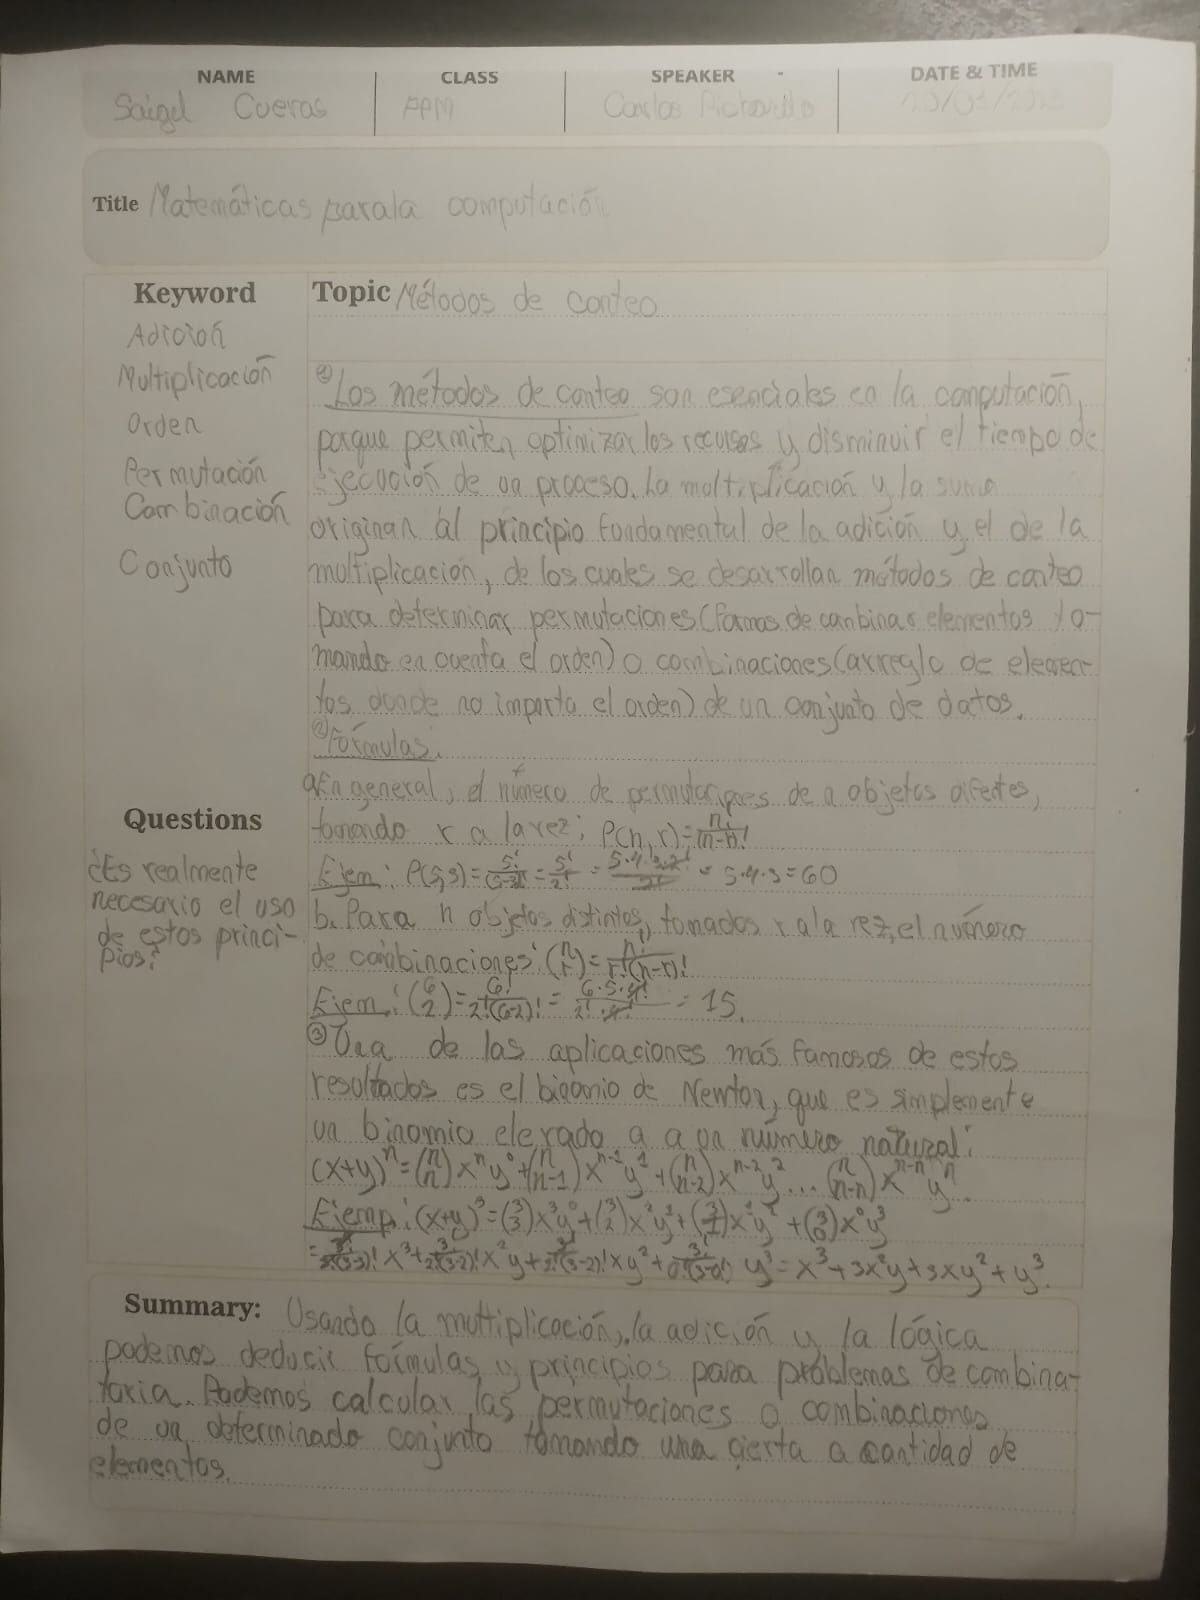 NAME CLASS SPEAKER DATE & TIME
Saigel Cuevas PPM Carlos
Title Matemáticas para la computación
Keyword
Adición
Multiplicación
Orden
Permutación
Combinación
Conjunto
Topic Métodos de conteo
① Los métodos de conteo son esenciales en la computación,
porque permiten optimizar los recursos y disminuir el tiempo de
ejecución de un proceso. La multiplicación y la suma
originan al principio fundamental de la adición y el de la
multiplicación, de los cuales se desarrollan métodos de conteo
para determinar permutaciones (formas de combinar elementos to-
mando en cuenta el orden) o combinaciones (arreglo de elemen-
tos donde no importa el orden) de un conjunto de datos.
② Fórmulas.
a. En general, el número de permutaciones de n objetos difectes,
tomando r a la vez; P(n, r) = n!/(n-r)!
Ejem: P(5,3) = 5!/(5-3)! = 5!/2! = 5·4·3·2!/2! = 5·4·3 = 60
b. Para n objetos distintos, tomados r a la vez, el número
de combinaciones: (n r) = n!/r!(n-r)!
Ejem: (6 2) = 6!/2!(6-2)! = 6·5·4!/2!·4! = 15.
③ Una de las aplicaciones más famosas de estos
resultados es el binomio de Newton, que es simplemente
un binomio elevado a a un número natural:
(x+y)ⁿ = (n n) xⁿ y⁰ + (n n-1) xⁿ⁻¹ y¹ + (n n-2) xⁿ⁻² y² ... (n n-n) xⁿ⁻ⁿ yⁿ.
Ejemp: (x+y)³ = (3 3) x³y⁰ + (3 2) x²y¹ + (3 1) x¹y² + (3 0) x⁰y³
= 3!/3!(3-3)! x³ + 3!/2!(3-2)! x²y + 3!/2!(3-2)! xy² + 3!/0!(3-0)! y³ = x³ + 3x²y + 3xy² + y³.
Questions
¿Es realmente
necesario el uso
de estos princi-
pios?
Summary: Usando la multiplicación, la adición y la lógica
podemos deducir fórmulas y principios para problemas de combina-
toria. Podemos calcular las permutaciones o combinaciones
de un determinado conjunto tomando una cierta a cantidad de
elementos.